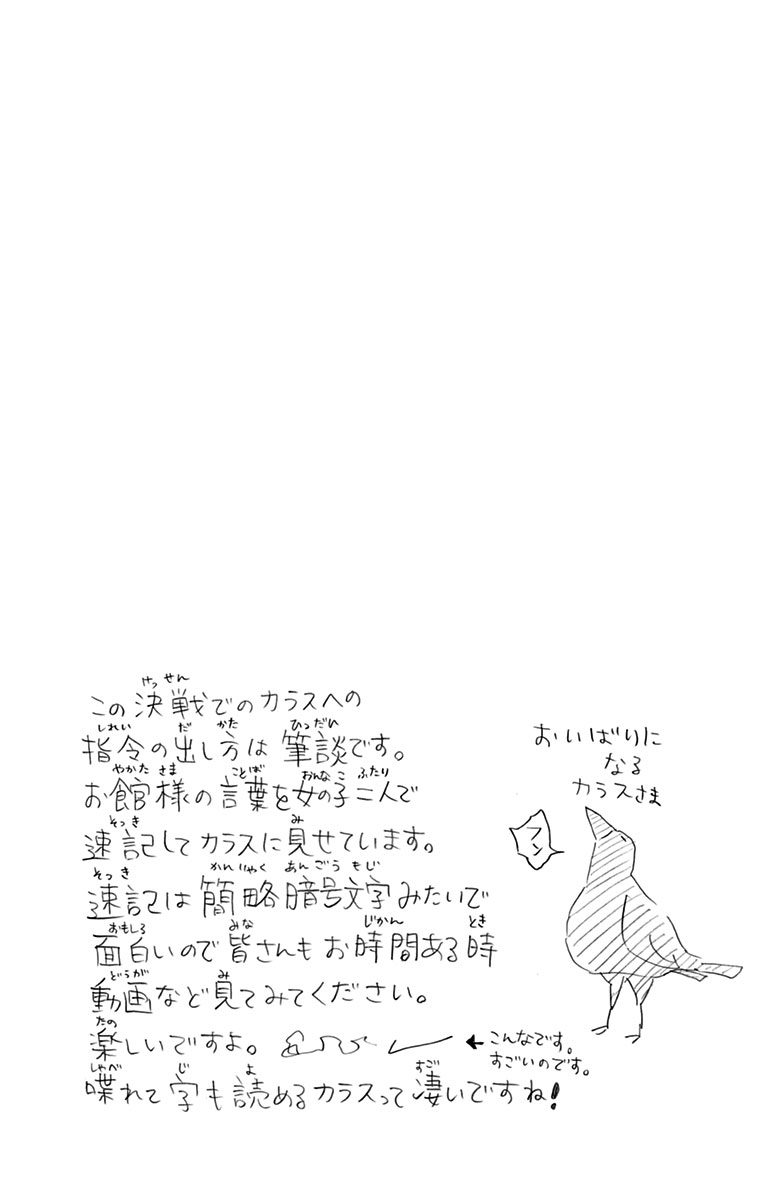 この決戦でのカラスへの
指令の出し方は筆談です。
お館様の言葉を女の子二人で
速記してカラスに見せています。
速記は簡略暗号文字みたいで
面白いので皆さんもお時間ある時
動画など見てみてください。
楽しいですよ。
←こんなです。
すごいのです。
喋れて字も読めるカラスって凄いですね!
おいばりに
なる
カラスさま
フン